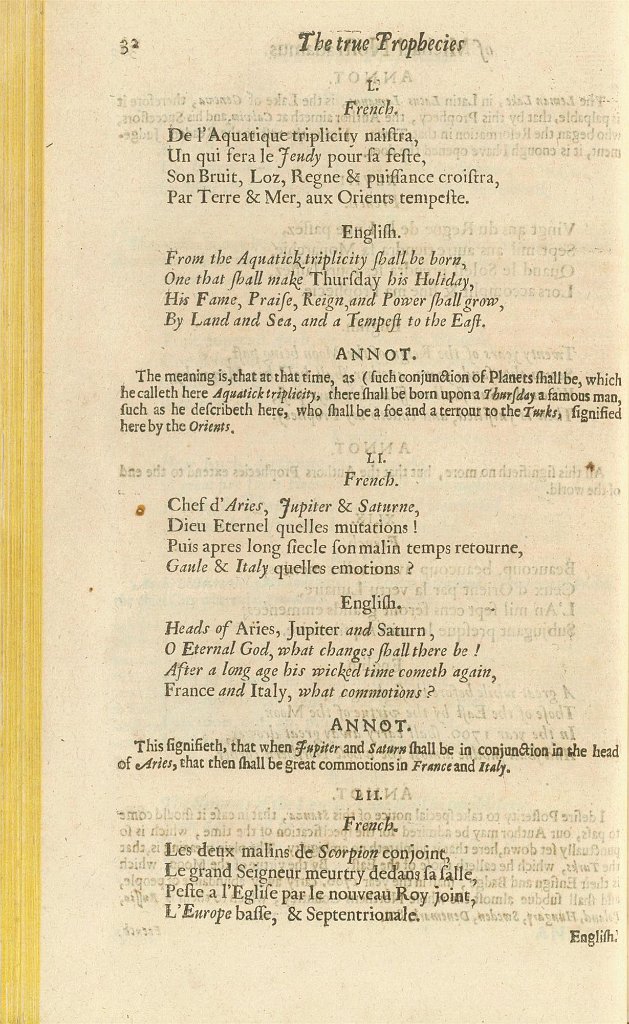 32 The true Prophecies
L.
French.
De l'Aquatique triplicity naiſtra,
Un qui ſera le Jeudy pour ſa feſte,
Son Bruit, Loz, Regne & puiſſance croiſtra,
Par Terre & Mer, aux Orients tempeſte.
Engliſh.
From the Aquatick triplicity ſhall be born,
One that ſhall make Thurſday his Holiday,
His Fame, Praiſe, Reign, and Power ſhall grow,
By Land and Sea, and a Tempeſt to the Eaſt.
ANNOT.
The meaning is, that at that time, as (ſuch conjunction of Planets ſhall be, which
he calleth here Aquatick triplicity, there ſhall be born upon a Thurſday a famous man,
ſuch as he deſcribeth here, who ſhall be a foe and a terrour to the Turks, ſignified
here by the Orients.
LI.
French.
Chef d'Aries, Jupiter & Saturne,
Dieu Eternel quelles mutations !
Puis apres long ſiecle ſon malin temps retourne,
Gaule & Italy quelles emotions ?
Engliſh.
Heads of Aries, Jupiter and Saturn,
O Eternal God, what changes ſhall there be !
After a long age his wicked time cometh again,
France and Italy, what commotions ?
ANNOT.
This ſignifieth, that when Jupiter and Saturn ſhall be in conjunction in the head
of Aries, that then ſhall be great commotions in France and Italy.
LII.
French.
Les deux malins de Scorpion conjoint,
Le grand Seigneur meurtry dedans ſa ſalle,
Peſte a l'Egliſe par le nouveau Roy joint,
L'Europe baſſe, & Septentrionale.
Engliſh.